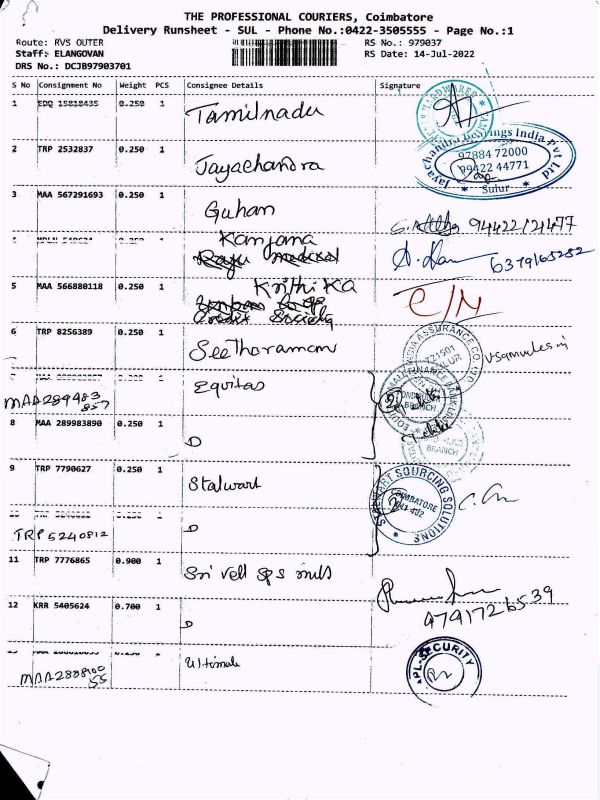 THE PROFESSIONAL COURIERS, Coimbatore
Delivery Runsheet - SUL - Phone No.:0422-3505555 - Page No.:1
Route: RVS OUTER
RS No.: 979037
Staff: ELANGOVAN
RS Date: 14-Jul-2022
DRS No.: DCJB97903701
S No Consignment No Weight PCS Consignee Details Signature
1 EDQ 15818435 0.250 1 Tamilnadu
HARDWARES
2 TRP 2532837 0.250 1 Jayachandra
Jayachandra Bearings India Pvt Ltd
97884 72000
99422 44771
* Sulur *
3 MAA 567291693 0.250 1 Guhan
94422121477
0.250 1 Kanjana
6379165252
5 MAA 566880118 0.250 1 Krithika
Society
C/M
6 TRP 8256389 0.250 1 Seetharaman
INDIA ASSURANCE CO
721501
SULUR
Equitas
MAA289483
857
BRANCH
8 MAA 289983890 0.250 1 D
BRANCH
9 TRP 7790627 0.250 1 Stalwart
STALWART SOURCING SOLUTIONS
COIMBATORE
641 402
TRP 5240812 D
11 TRP 7776865 0.900 1 Sri Vell Sps mills
4791726539
12 KRR 5405624 0.700 1 D
MAA2888900
55
Ultimate
APL-SECURITY